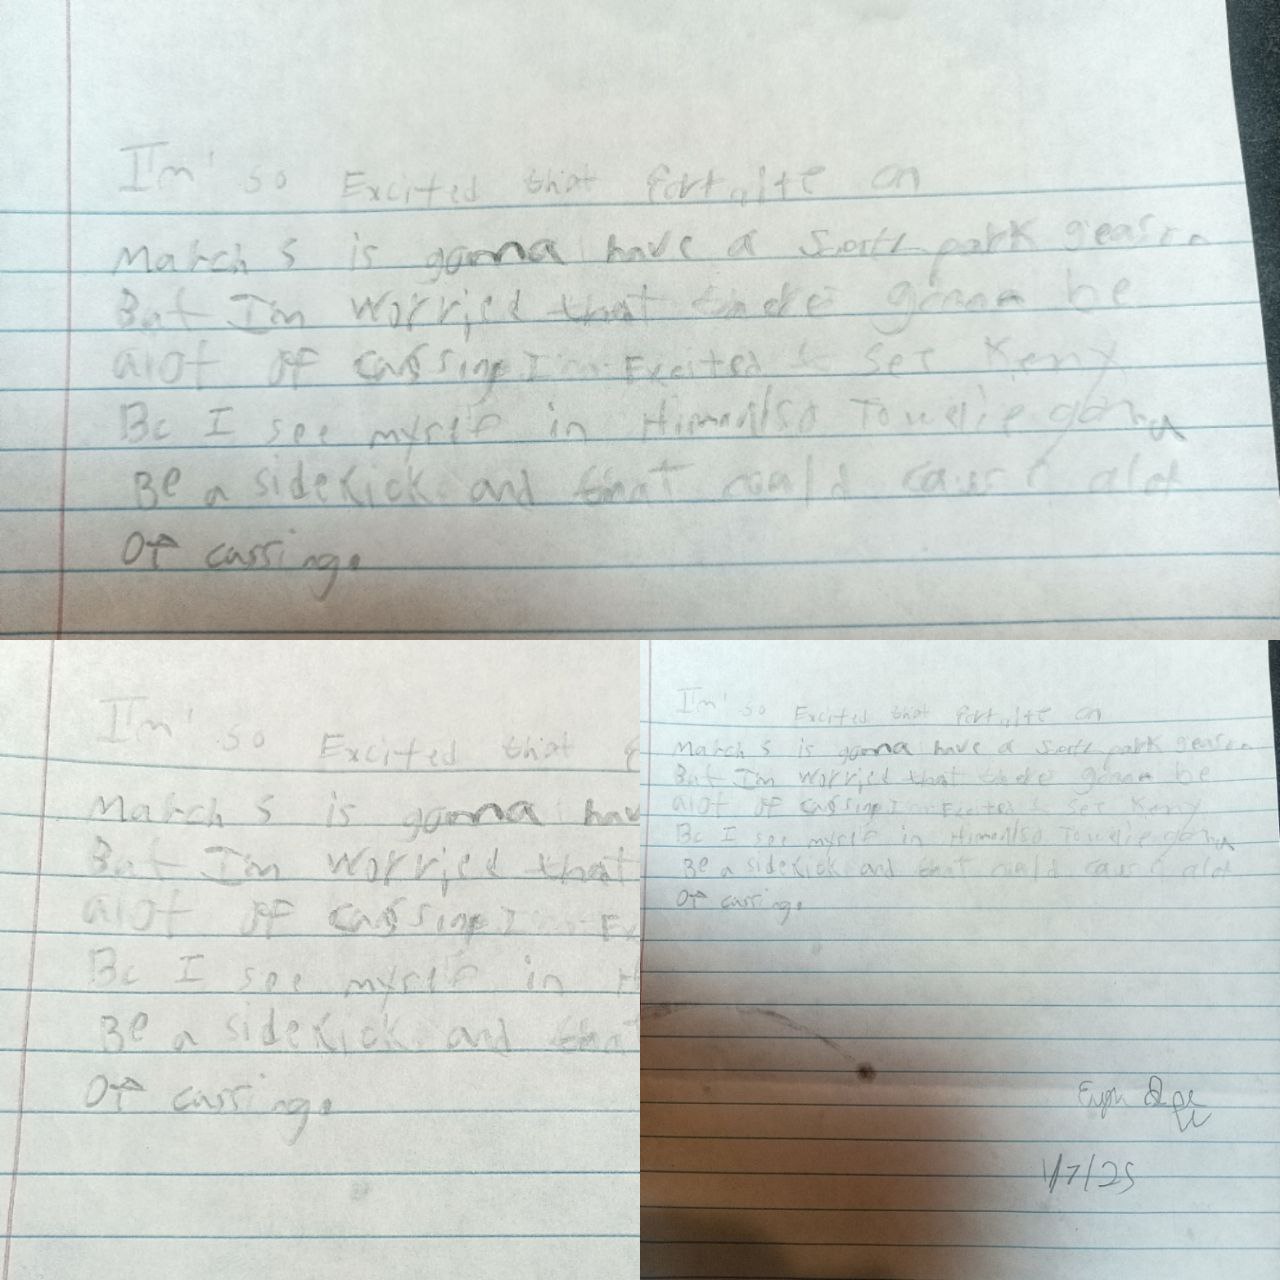 I'm so Excited that fortnite on
March 5 is gonna have a South park season
But I'm worried that there gonna be
alot of cussing I'm Excited to see Keny
Bc I see myself in Him Also Towelie gonna
Be a sidekick and that could cause alot
of cussing.
I'm so Excited that
March 5 is gonna hav
But I'm worried that
alot of cussing I'm Ex
Bc I see myself in H
Be a sidekick and tha
of cussing.
I'm so Excited that fortnite on
March 5 is gonna have a South park season
But I'm worried that there gonna be
alot of cussing I'm Excited to see Keny
Bc I see myself in Him Also Towelie gonna
Be a sidekick and that could cause alot
of cussing.
1/7/25